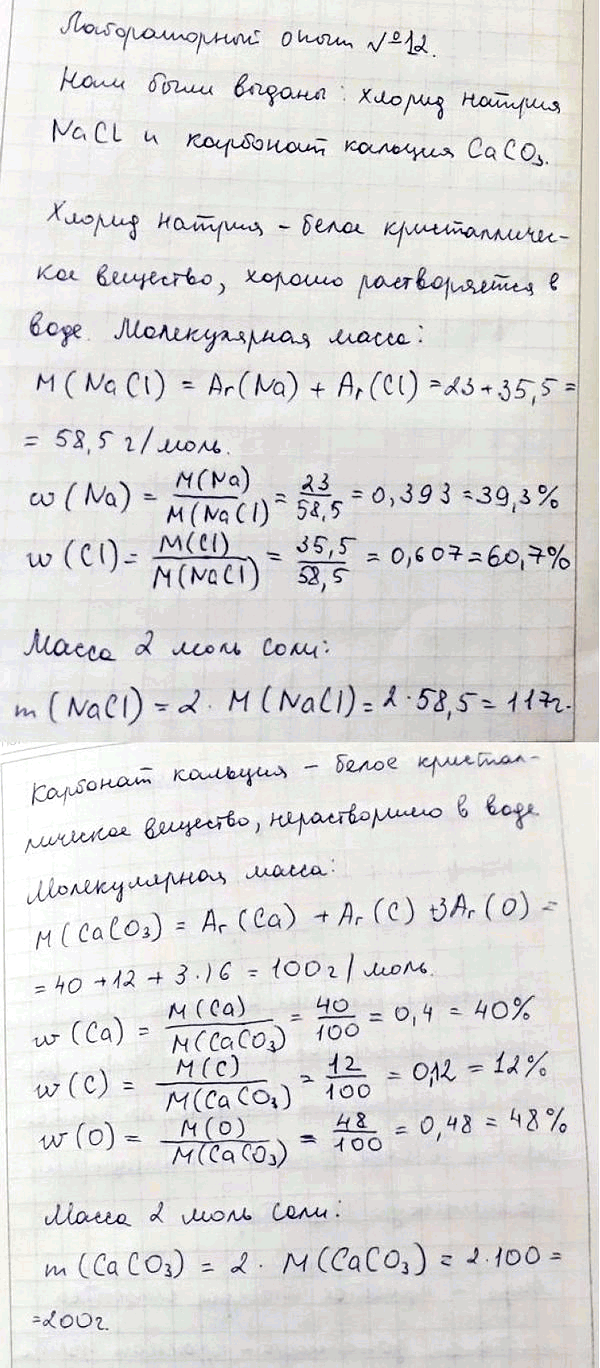 Лабораторный опыт №12.
Нам были выданы: хлорид натрия
NaCl и карбонат кальция CaCO₃.
Хлорид натрия - белое кристалличес-
кое вещество, хорошо растворяется в
воде. Молекулярная масса:
M(NaCl) = Ar(Na) + Ar(Cl) = 23 + 35,5 =
= 58,5 г/моль.
w(Na) = M(Na)/M(NaCl) = 23/58,5 = 0,393 = 39,3%
w(Cl) = M(Cl)/M(NaCl) = 35,5/58,5 = 0,607 = 60,7%
Масса 2 моль соли:
m(NaCl) = 2 · M(NaCl) = 2 · 58,5 = 117г.
Карбонат кальция - белое кристал-
лическое вещество, нерастворимо в воде
Молекулярная масса:
M(CaCO₃) = Ar(Ca) + Ar(C) + 3Ar(O) =
= 40 + 12 + 3·16 = 100 г/моль.
w(Ca) = M(Ca)/M(CaCO₃) = 40/100 = 0,4 = 40%
w(C) = M(C)/M(CaCO₃) = 12/100 = 0,12 = 12%
w(O) = M(O)/M(CaCO₃) = 48/100 = 0,48 = 48%
Масса 2 моль соли:
m(CaCO₃) = 2 · M(CaCO₃) = 2·100 =
=200г.